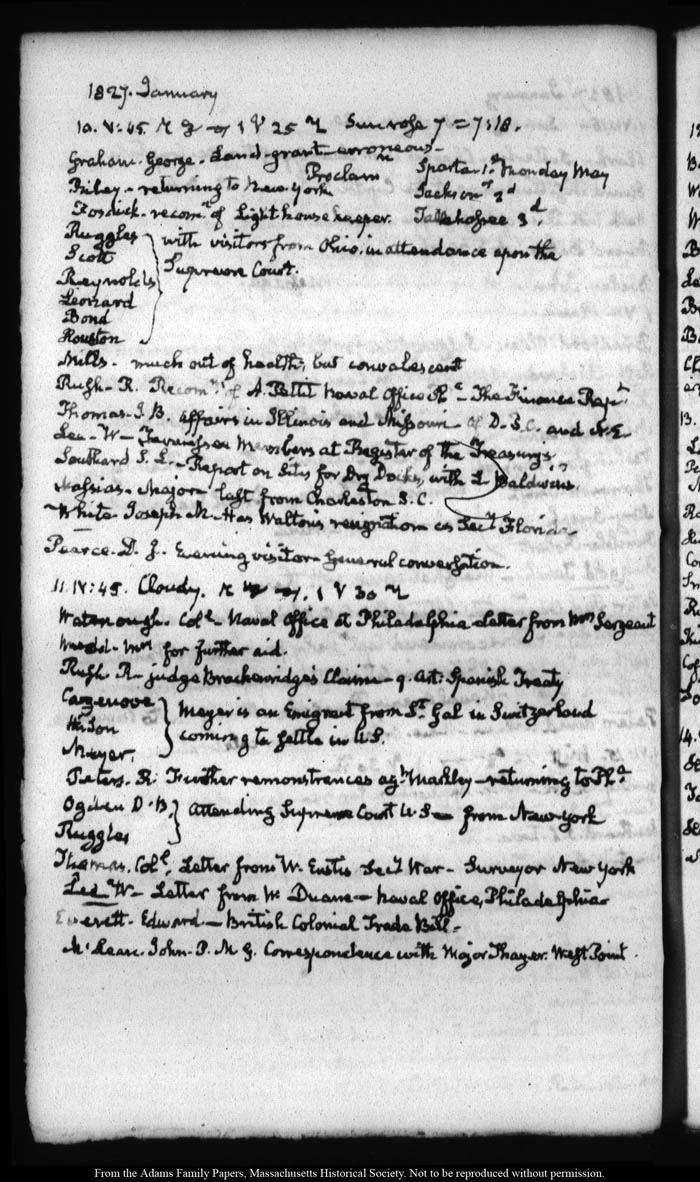 1827. January
10. V:45. Sun rose 7 = 7:18.
Graham. George. Land-grant erroneous.
Proclamn Sparta 1st Monday May
Bailey - returning to New-York Jackson 2d
Fosdick - recomn of Light house keeper. Tallahassee 3d.
Ruggles with visitors from Ohio, in attendance upon the
Scott Supreme Court.
Reynolds
Leonard
Bond
Houston
Mills. much out of health; but convalescent
Rush. R. Recomns of A. Pettit Naval Office Pha - The Finance Rept
Thomas. J. B. affairs in Illinois and Missouri - of D. P. C. and N. E.
Lee - W - Tennessee Members at Register of the Treasury's
Southard S. L. - Report on Sites for Dry Docks, with L Baldwin's.
Massias - Major - last from Charleston S. C.
White. Joseph M. Has Walton's resignation as Secy Florida
Pearce. D. J. Evening visitor - General conversation.
11. IV:45. Cloudy.
Watmough. Coll - Naval Office at Philadelphia - letter from Mrs Sergeant
Mrs for further aid.
Rush R - judge Brackenridge's Claim - 9. Art: Spanish Treaty
Cazenove Meyer is an Emigrant from St Gal in Switzerland
his Son coming to settle in U.S.
Meyer.
Peters. R. Further remonstrances agt Markley - returning to Pha
Ogden D. B. attending Supreme Court U.S - from New York
Ruggles
Thomas. Coll. Letter from W. Eustis Secy War - Surveyor New York
Lee W - Letter from W Duane - Naval Office, Philadelphia
Everett - Edward - British Colonial Trade Bill -
McLean. John. P. M. G. Correspondence with Major Thayer. West Point.
From the Adams Family Papers, Massachusetts Historical Society. Not to be reproduced without permission.